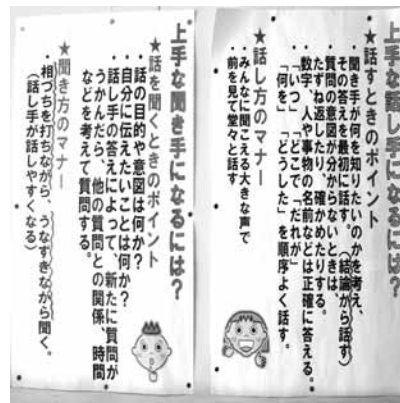 上手な話し手になるには?
★話すときのポイント
・聞き手が何を知りたいのかを考え、
その答えを最初に話す。(結論から話す)
・質問の意図が分からないときは、
たずね返したり、確かめたりする。
・数字、人や事物の名前などは正確に答える。
・「いつ」「どこで」「だれが」
「何を」「どうした」を順序よく話す。
★話し方のマナー
・みんなに聞こえる大きな声で
・前を見て堂々と話す
上手な聞き手になるには?
★話を聞くときのポイント
・話の目的や意図は何か?
・自分に伝えたいことは何か?
・話し手の答えによって、新たに質問が
うかんだら、他の質問との関係、時間
などを考えて質問する。
★聞き方のマナー
・相づちを打ちながら、うなずきながら聞く。
(話し手が話しやすくなる)